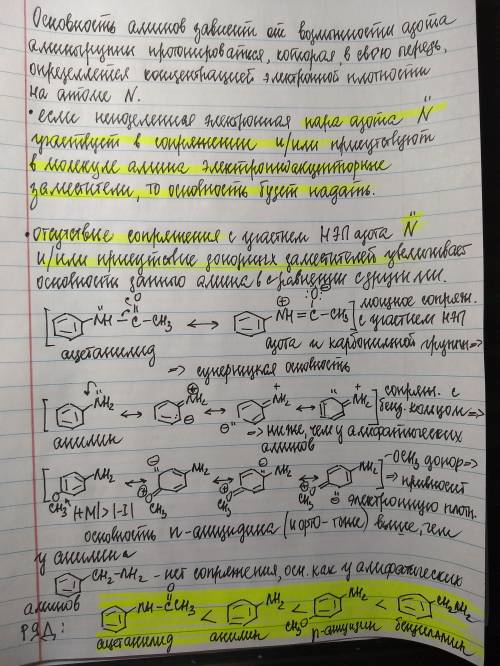 Основность аминов зависит от возможности азота
аминогруппы протонироваться, которая, в свою очередь,
определяется концентрацией электронной плотности
на атоме N.
• если неподеленная электронная пара азота N̈
участвует в сопряжении и/или присутствуют
в молекуле амина электроноакцепторные
заместители, то основность будет падать.
• отсутствие сопряжения с участием НЭП азота N̈
и/или присутствие донорных заместителей увеличивает
основность данного амина в сравнении с другими.
[ N̈H – C – CH₃ ↔ NH = C – CH₃ ] мощное сопряж.
O ⊕ :Ö:⊖ с участием НЭП
ацетанилид азота и карбонильной группы =>
=> супернизкая основность
[ N̈H₂ ↔ ⊕NH₂ ⊖ ↔ ⊖ +NH₂ ↔ +NH₂ ] сопряж. с
анилин бенз. кольцом =>
=> ниже, чем у алифатических
аминов
[ NH₂ ↔ NH₂ ↔ NH₂ ↔ NH₂ ] -OCH₃ донор =>
OCH₃ |+M| > |-I| => привносит
электронную плотн.
основность п-анизидина (и орто- тоже) выше, чем
у анилина
CH₂–NH₂ – нет сопряжения, осн. как у алифатических
аминов
РЯД: NH – C – CH₃ < NH₂ < CH₃O NH₂ < CH₂NH₂
ацетанилид анилин п-анизидин бензиламин